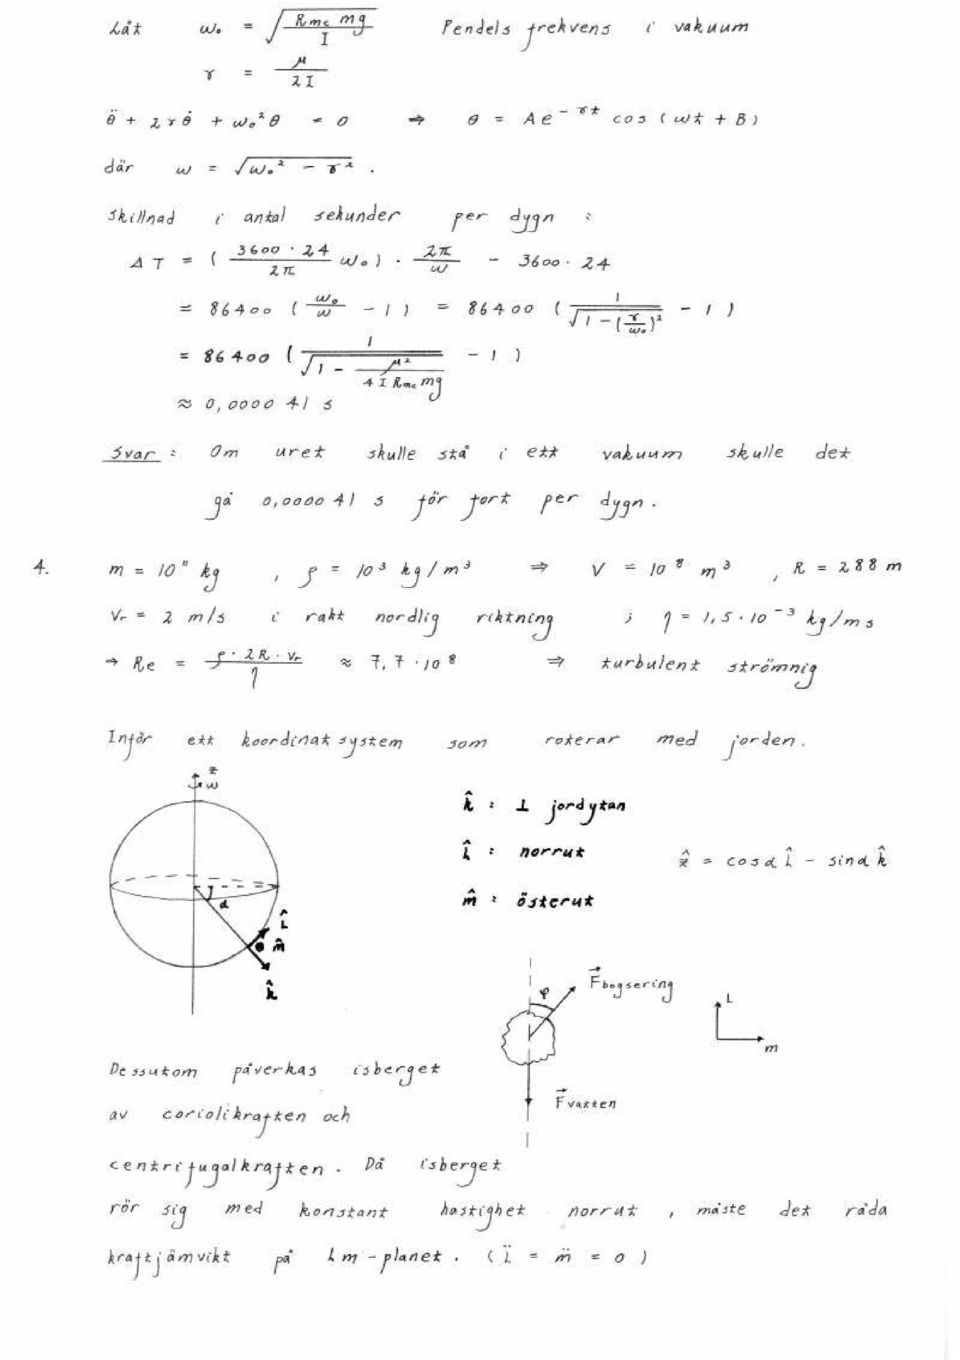 Låt ω₀ = √(R_mc mg / I) Pendels frekvens i vakuum
γ = μ / 2I
θ̈ + 2γθ̇ + ω₀²θ = 0 ⇒ θ = Ae^(-γt) cos(ωt + B)
där ω = √(ω₀² - γ²) .
Skillnad i antal sekunder per dygn :
ΔT = ( (3600 · 24 / 2π) ω₀ ) · 2π/ω - 3600 · 24
= 86400 ( ω₀/ω - 1 ) = 86400 ( 1/√(1 - (γ/ω₀)²) - 1 )
= 86400 ( 1/√(1 - μ²/(4 I R_mc mg)) - 1 )
≈ 0,0000 41 s
Svar : Om uret skulle stå i ett vakuum skulle det
gå 0,0000 41 s för fort per dygn .
4. m = 10¹¹ kg , ρ = 10³ kg/m³ ⇒ V = 10⁸ m³ , R = 288 m
Vr = 2 m/s i rakt nordlig riktning ; η = 1,5 · 10⁻³ kg/ms
→ Re = ρ · 2R · Vr / η ≈ 7,7 · 10⁸ ⇒ turbulent strömnig
Inför ett koordinatsystem som roterar med jorden .
ẑ
ω
k̂ : ⊥ jordytan
l̂ : norrut
ẑ = cosα l̂ - sinα k̂
m̂ : österut
α
l̂
m̂
k̂
φ
F⃗ bogsering
L
m
Dessutom påverkas isberget
F⃗ vatten
av coriolikraften och
centrifugalkraften . Då isberget
rör sig med konstant hastighet norrut , måste det råda
kraftjämvikt på Lm-planet . ( l̈ = m̈ = 0 )